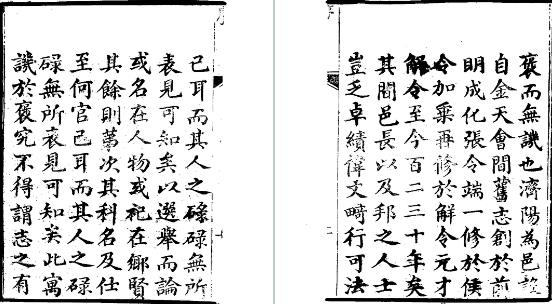 褒而無譏也濟陽為邑設
自金天會間舊志創於前
明成化張令端一修於侯
令加乘再修於解令元才
解令至今百二三十年矣
其間邑長以及邦之人士
豈乏卓績偉文畸行可法
已耳而其人之碌碌無所
表見可知矣以選舉而論
或名在人物或祀在鄉賢
其餘則第次其科名及仕
至何官已耳而其人之碌
碌無所表見可知矣此寓
譏於褒究不得謂志之有